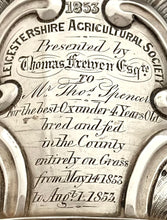 1853
LEICESTERSHIRE AGRICULTURAL SOCIETY
Presented by
Thomas Frewen Esqre
TO
Mr Thos Spencer
For the best Ox under 4 Years Old
bred and fed
in the County
entirely on Grass
from May 14 1853
to Augt 1 1853.